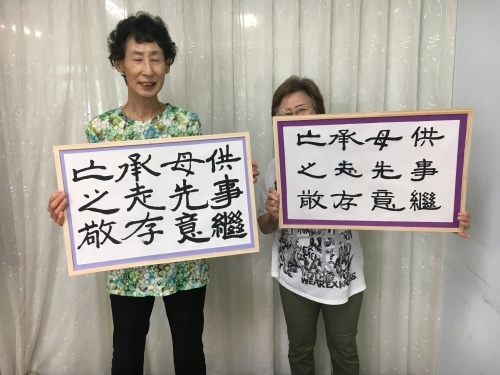 供事繼
母先意
承志存
亡之敬
供事繼
母先意
承志存
亡之敬